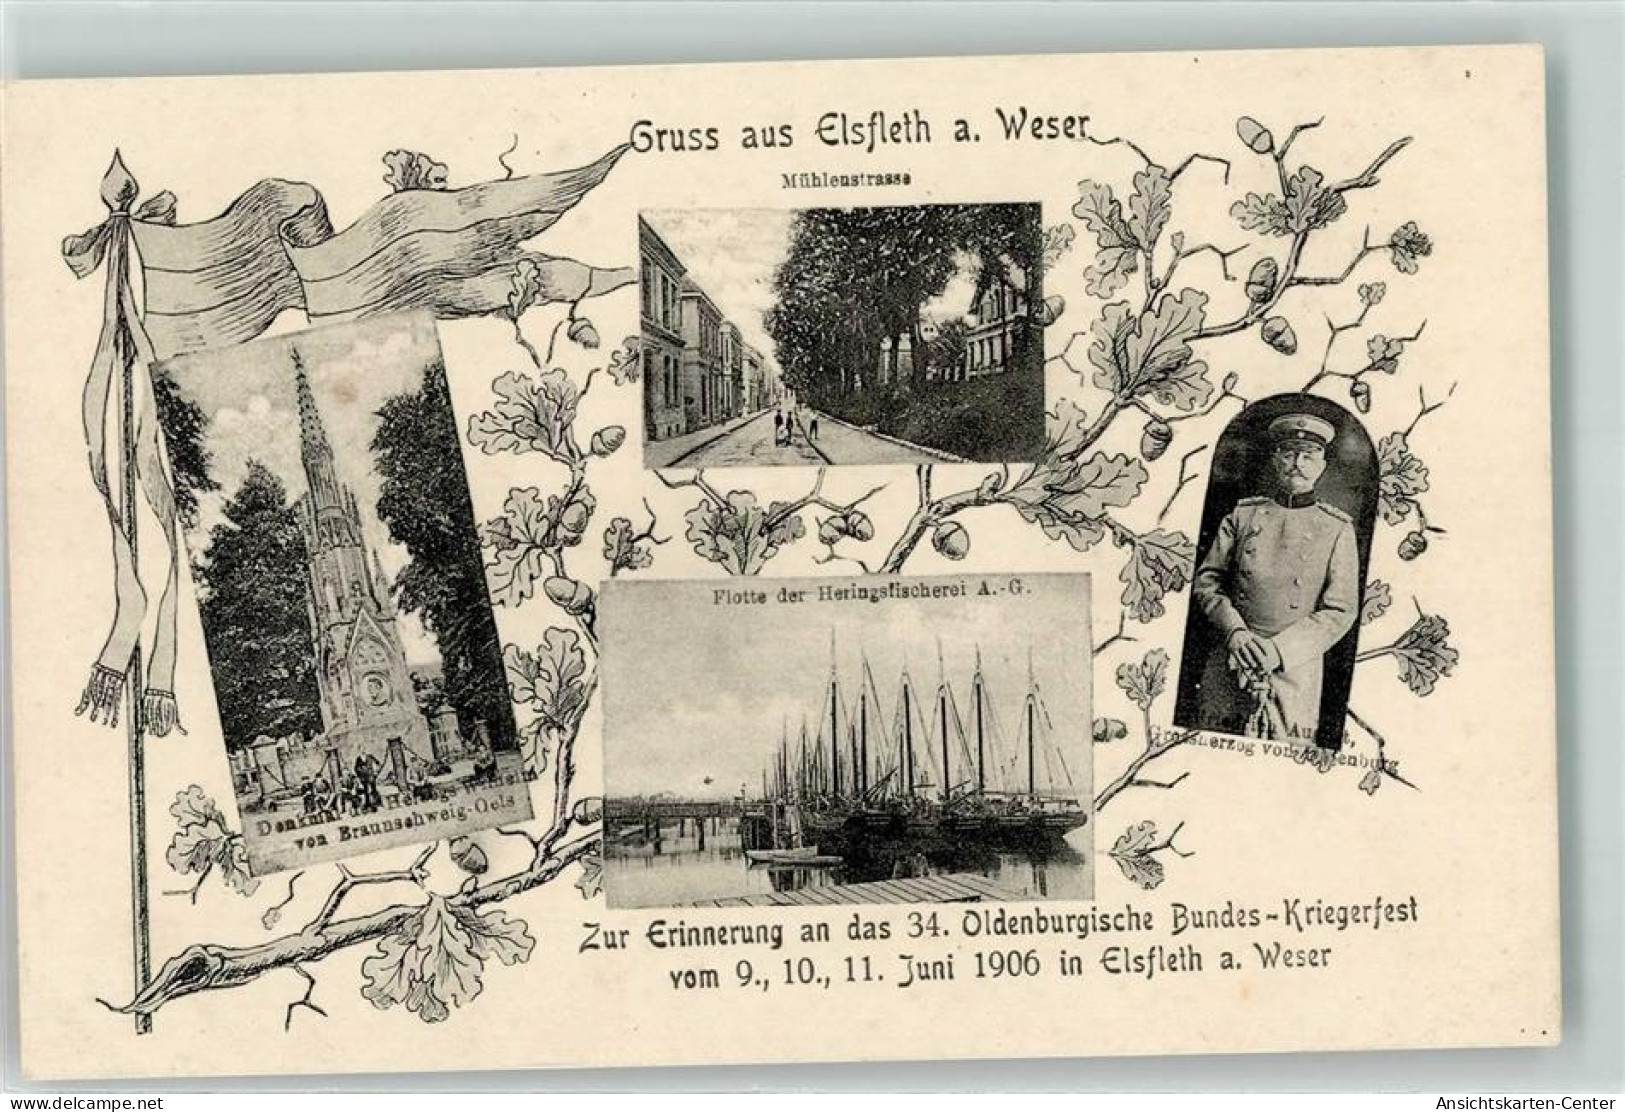 Gruss aus Elsfleth a. Weser
Mühlenstrasse
Flotte der Heringsfischerei A.-G.
Denkmal des Herzogs Wilhelm
von Braunschweig-Oels
August,
Grossherzog von Oldenburg
Zur Erinnerung an das 34. Oldenburgische Bundes-Kriegerfest
vom 9., 10., 11. Juni 1906 in Elsfleth a. Weser
www.delcampe.net
Ansichtskarten-Center